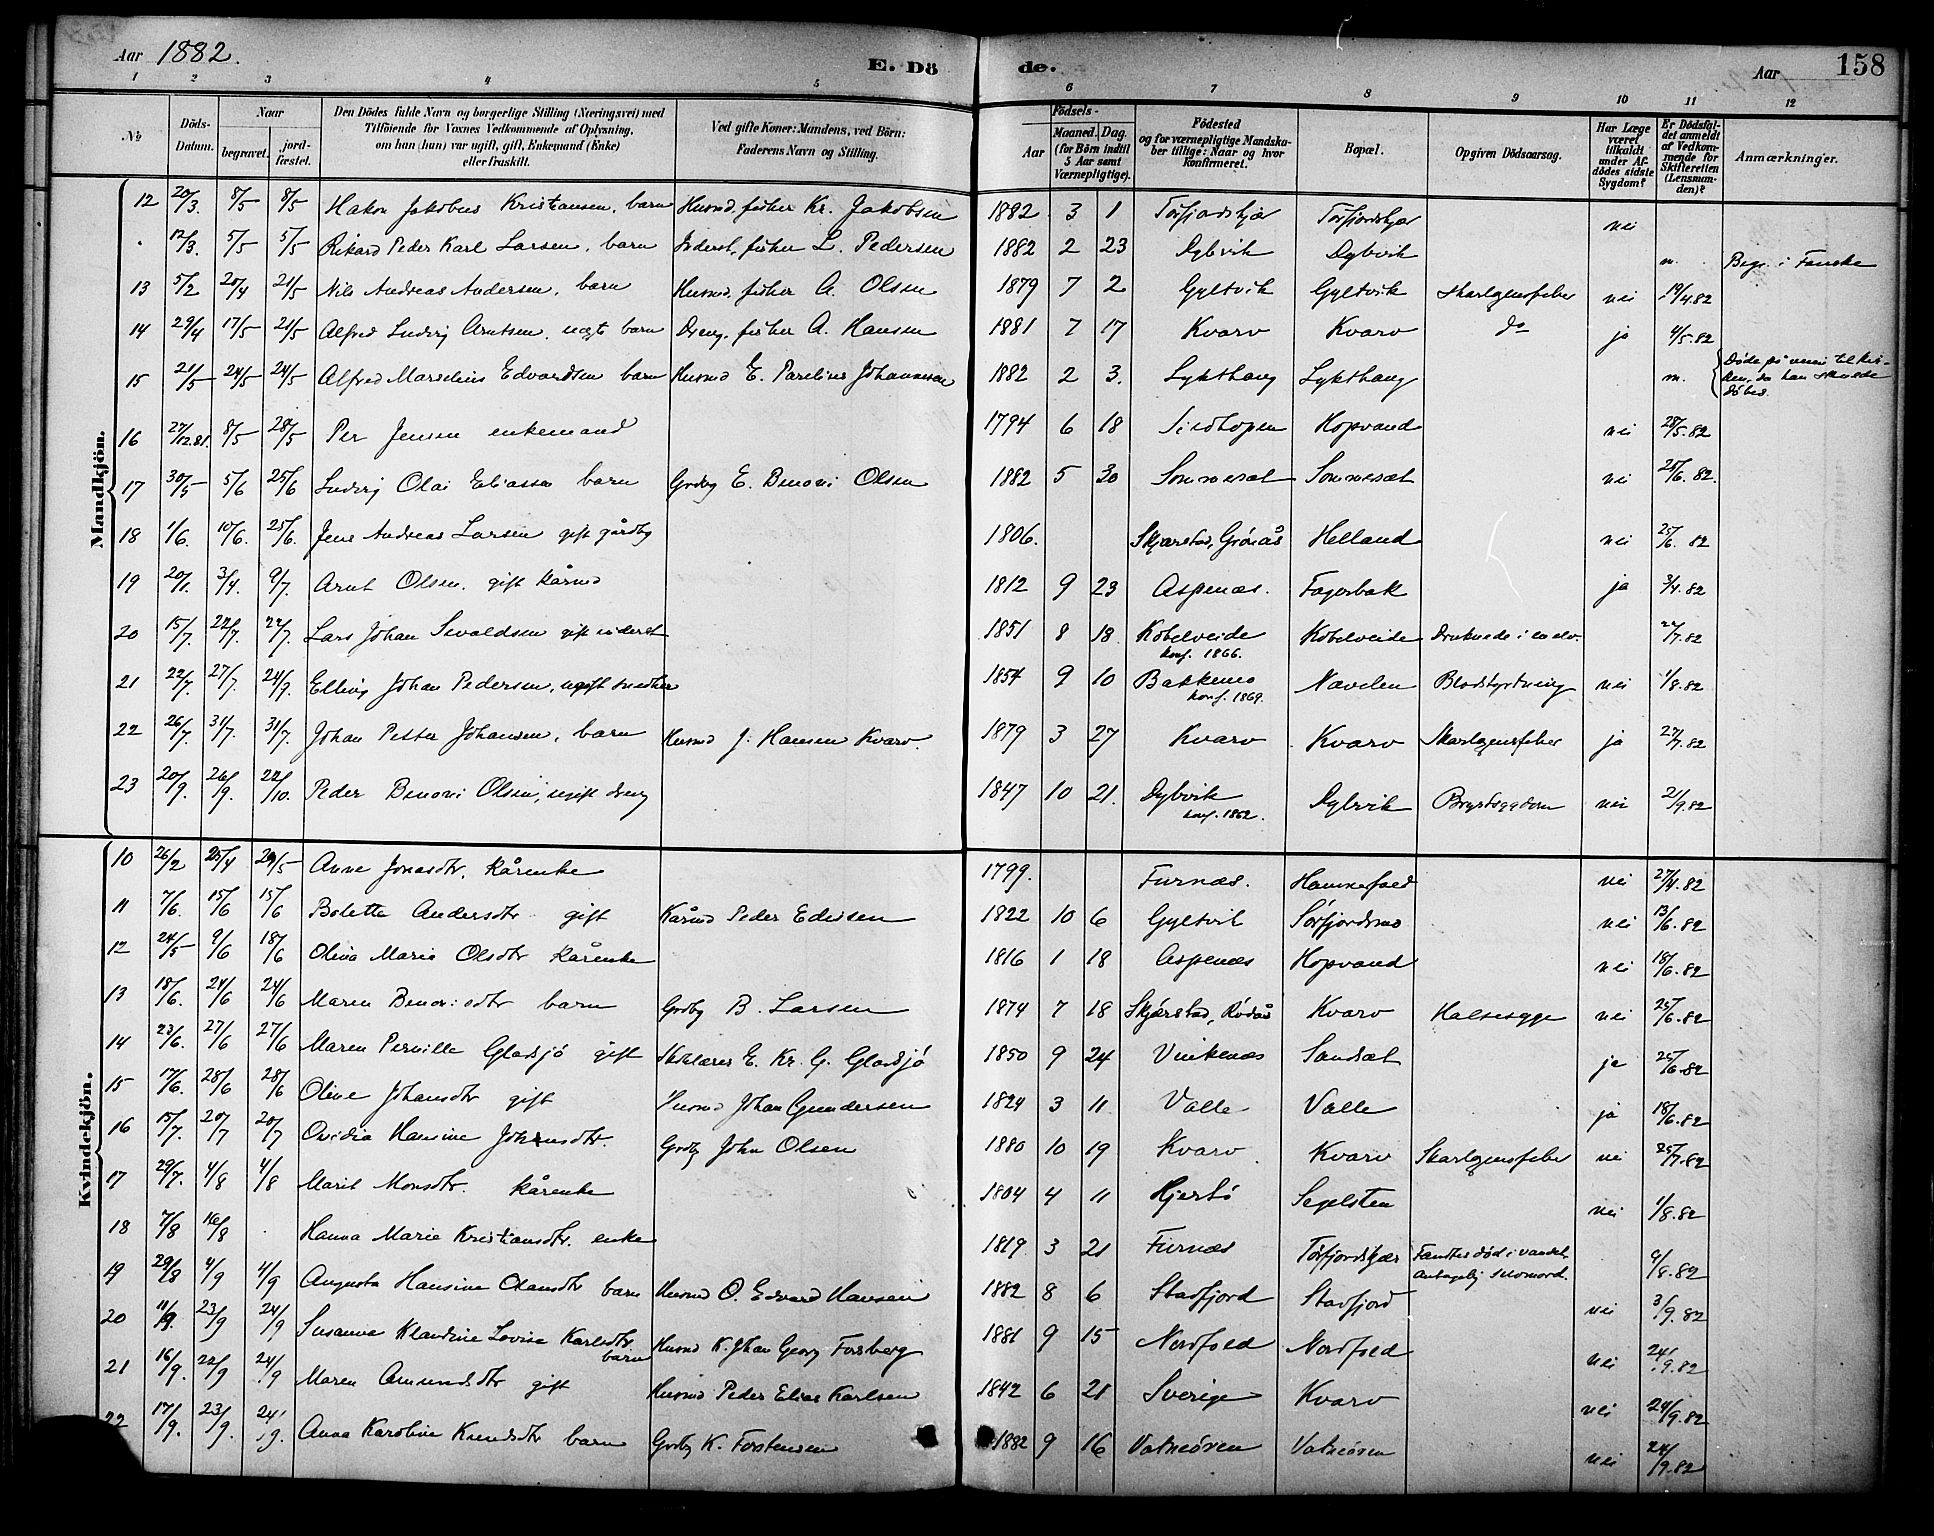 Aar 1882.
E. Döde.
Aar 158
1 2 3 4 5 6 7 8 9 10 11 12
No
Döds-Datum.
Naar
begravet.
jordfæstet.
Den Dödes fulde Navn og borgerlige Stilling (Næringsvei) med Tilföiende for Voxnes Vedkommende af Oplysning, om han (hun) var ugift, gift, Enkemand (Enke) eller fraskilt.
Ved gifte Koner: Mandens, ved Börn: Faderens Navn og Stilling.
Födsels-
Aar
Maaned. Dag.
(for Börn indtil 5 Aar samt Værnepligtige).
Födested og for værnepligtige Mandskaber tillige: Naar og hvor Konfirmeret.
Bopæl.
Opgiven Dödsaarsag.
Har Læge været tilkaldt under Afdödes sidste Sygdom?
Er Dödsfaldet anmeldt af Vedkommende for Skifteretten (Lensmanden)?
Anmærkninger.
Mandkjön.
12 20/3. 8/5 8/5 Hakon Jakobus Kristiansen, barn Husmd, fisker Kr. Jakobsen 1882 3 1 Törfjordskjær Törfjordskjær nei
12/3. 5/5 5/5 Rikard Peder Karl Larsen, barn Inderst, fisker L. Pedersen 1882 2 23 Dybvik Dybvik n. Begr. i Fauske
13 5/2 20/4 21/5 Nils Andreas Andersen, barn Husmd, fisker A. Olsen 1879 7 2 Gyltvik Gyltvik Skarlagensfeber nei 19/4.82
14 29/4 17/5 21/5 Alfred Ludvig Arntsen, uægt barn Dreng, fisker A. Hansen 1881 7 17 Kvarv Kvarv do ja 4/5.82
15 21/5 24/5 24/5 Alfred Marselius Edvardsen barn Husmd E. Parelius Johannesen 1882 2 3. Lykthaug Lykthaug n. Döde på veien til kirken, da han skulde döbes.
16 27/12.81. 8/5 28/5 Per Jensen enkemand 1794 6 18 Hopvand nei 28/5.82
17 30/5 5/6 25/6 Ludvig Olai Eliassen barn Grdbg E. Benoni Olsen 1882 5 30 Sommerset Sommerset nei 25/6.82.
18 1/6. 10/6. 25/6. Jens Andreas Larsen gift gårdbg 1806. Skjærstad, Grönås Helland nei 25/6. 82
19 20/1. 3/4. 9/7. Arnt Olsen. gift kårmd 1812 9 23 Aspenæs. Fagerbak ja 3/4.82
20 15/7. 22/7. 22/7. Lars Johan Sivaldsen gift inderst 1851 8 18 Kobelveide konf. 1866. Kobelveide Druknede i en elv. 22/7.82
21 22/7. 27/7. 24/9. Elling Johan Pedersen, ugift snedker 1854 9 10 Bakkemo konf. 1869. Nævelen Blodstyrtning nei 1/8.82
22 26/7. 31/7. 31/7. Johan Petter Johansen, barn Husmd J. Hansen Kvarv. 1879 3 27 Kvarv Kvarv Skarlagensfeber ja 27/7.82
23 20/9. 26/9. 22/10. Peder Benoni Olsen, ugift dreng 1847 10 21. Dybvik konf. 1862. Dybvik Brystsygdom nei 21/9.82
Kvindekjön.
10 26/2 25/4 29/5 Anne Jonasdtr, kårenke 1799. Furnæs. Hammerfald nei 27/4.82
11 7/6. 15/6 15/6 Bolette Andersdtr gift Kårmd Peder Edisen 1822 10 6 Gyltvik Sörfjordmo nei 13/6.82
12 24/5 9/6 18/6 Oliva Marie Olsdtr kårenke 1816 1 18 Aspenæs Hopvand nei 18/6.82
13 18/6. 24/6 24/6 Maren Benonisdtr barn Grdbg B. Larsen 1874 7 18 Skjerstad, Rödås Kvarv Halsesyge nei 25/6.82
14 23/6. 27/6 27/6 Maren Pernille Gladsjö gift Skolelærer E. Kr. G. Gladsjö 1850 9 24 Vinkenæs Sandsæt ja 25/6.82
15 17/6. 28/6 28/6 Oline Johansdtr gift Husmd Johan Gundersen 1824 3 11 Valle Valle ja 18/6.82
16 15/7. 20/7 20/7 Ovidia Hansine Johnsdtr. Grdbg John Olsen 1880 10 19 Kvarv Kvarv Skarlagensfeber nei 25/7.82
17 29/7. 4/8 4/8 Marit Monsdtr. kårenke 1804 4 11 Hjertö Segelsten nei 1/8.82
18 7/8 16/8 Hanna Marie Kristiansdtr. enke 1819 3 21 Furnæs Törfjordskjær Fandtes död i vandet. Antagelig selvmord. 9/8.82
19 29/8 4/9 4/9 Augusta Hansine Olausdtr barn Husmd O. Edvard Hansen 1882 8 6 Stadfjord Stadfjord nei 3/9.82
20 11/9. 23/9 24/9 Susanna Klaudine Lovise Karlsdtr. barn Husmd K. Johan Georg Forsberg 1881 9 15 Nordfold Nordfold nei 24/9.82
21 16/9. 22/9 24/9 Maren Amundsdtr gift Husmd Peder Elias Karlsen 1842 6 21 Sverige Kvarv nei 24/9.82
22 17/9. 23/9. 24/9. Anna Karoline Knudsdtr barn Grdbg K. Torstensen 1882 9 16 Vatneören Vatneören nei 24/9.82